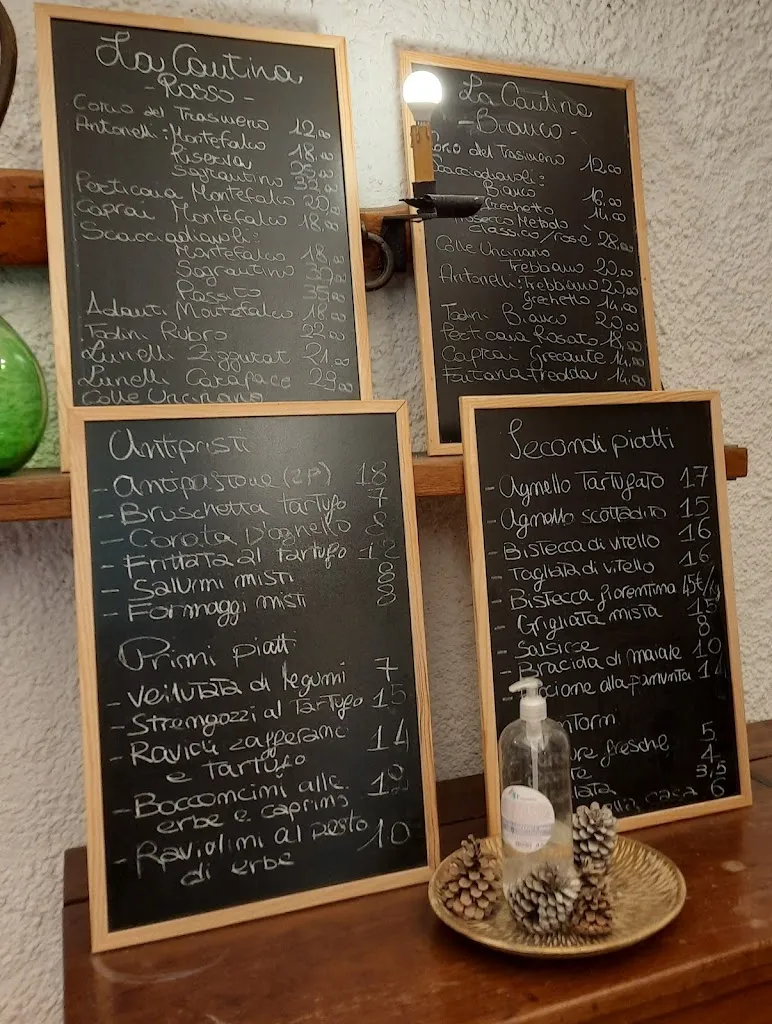 La Cantina
- Rosso -
Corno del Trasimeno 12,00
Antonelli: Montefalco 18,00
Riserva
Sagrantino
Perticaia Montefalco 20,00
Caprai Montefalco 18,00
Scacciadiavoli:
Montefalco 18,00
Sagrantino
Passito
Adanti Montefalco 18,00
Todini Rubro 22,00
Lunelli Ziggurat 21,00
Lunelli Carapace 29,00
Colle Uncinano
La Cantina
- Bianco -
Corno del Trasimeno 12,00
Scacciadiavoli:
Bianco 16,00
Grechetto 14,00
Metodo
classico/rosè 28,00
Colle Uncinano
Trebbiano 20,00
Antonelli: Trebbiano 20,00
Grechetto 14,00
Todini Bianco 20,00
Perticaia Rosato 18,00
Caprai Grecante 14,00
Fontana Fredda 14,00
Antipasti
- Antipastone (2P) 18
- Bruschetta tartufo 7
- Corata D'agnello 8
- Frittata al tartufo 12
- Salumi misti 8
- Formaggi misti 8
Primi piatti
- Vellutata di legumi 7
- Strengozzi al Tartufo 15
- Ravioli zafferano
e tartufo 14
- Bocconcini alle 12
erbe e caprino
- Raviolini al pesto 10
di erbe
Secondi piatti
- Agnello Tartufato 17
- Agnello scottadito 15
- Bistecca di vitello 16
- Tagliata di vitello 16
- Bistecca fiorentina 45€/
- Grigliata mista 15
- Salsicce 8
- Braciola di maiale 10
alla panunta
ntorni
ure fresche 5
te 4
lata 3,5
casa 6